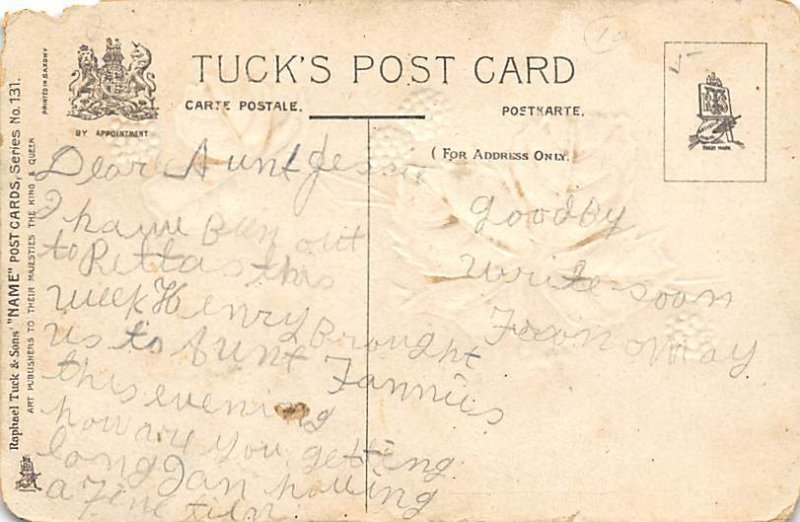 TUCK'S POST CARD
CARTE POSTALE.
POSTKARTE.
BY APPOINTMENT
(FOR ADDRESS ONLY.
TRADE MARK
Raphael Tuck & Sons' "NAME" POST CARDS, Series No. 131.
ART PUBLISHERS TO THEIR MAJESTIES THE KING & QUEEN
PRINTED IN SAXONY
10
Dear Aunt Jessie
I have Been out
to Rettas this
week Henry Brought
us to Aunt Fannies
this evening
how are you getting
long I an having
a fine
goodby
write soon
From May